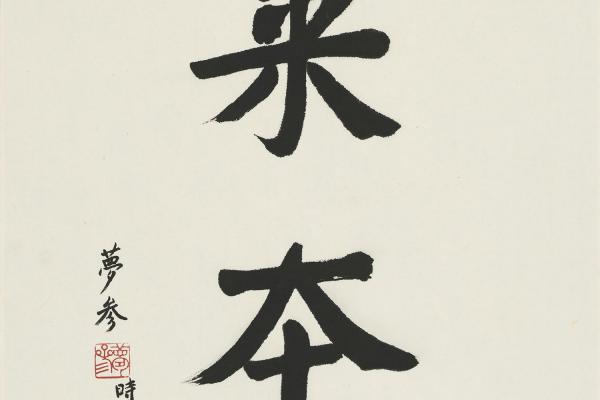 來
本
夢参
時